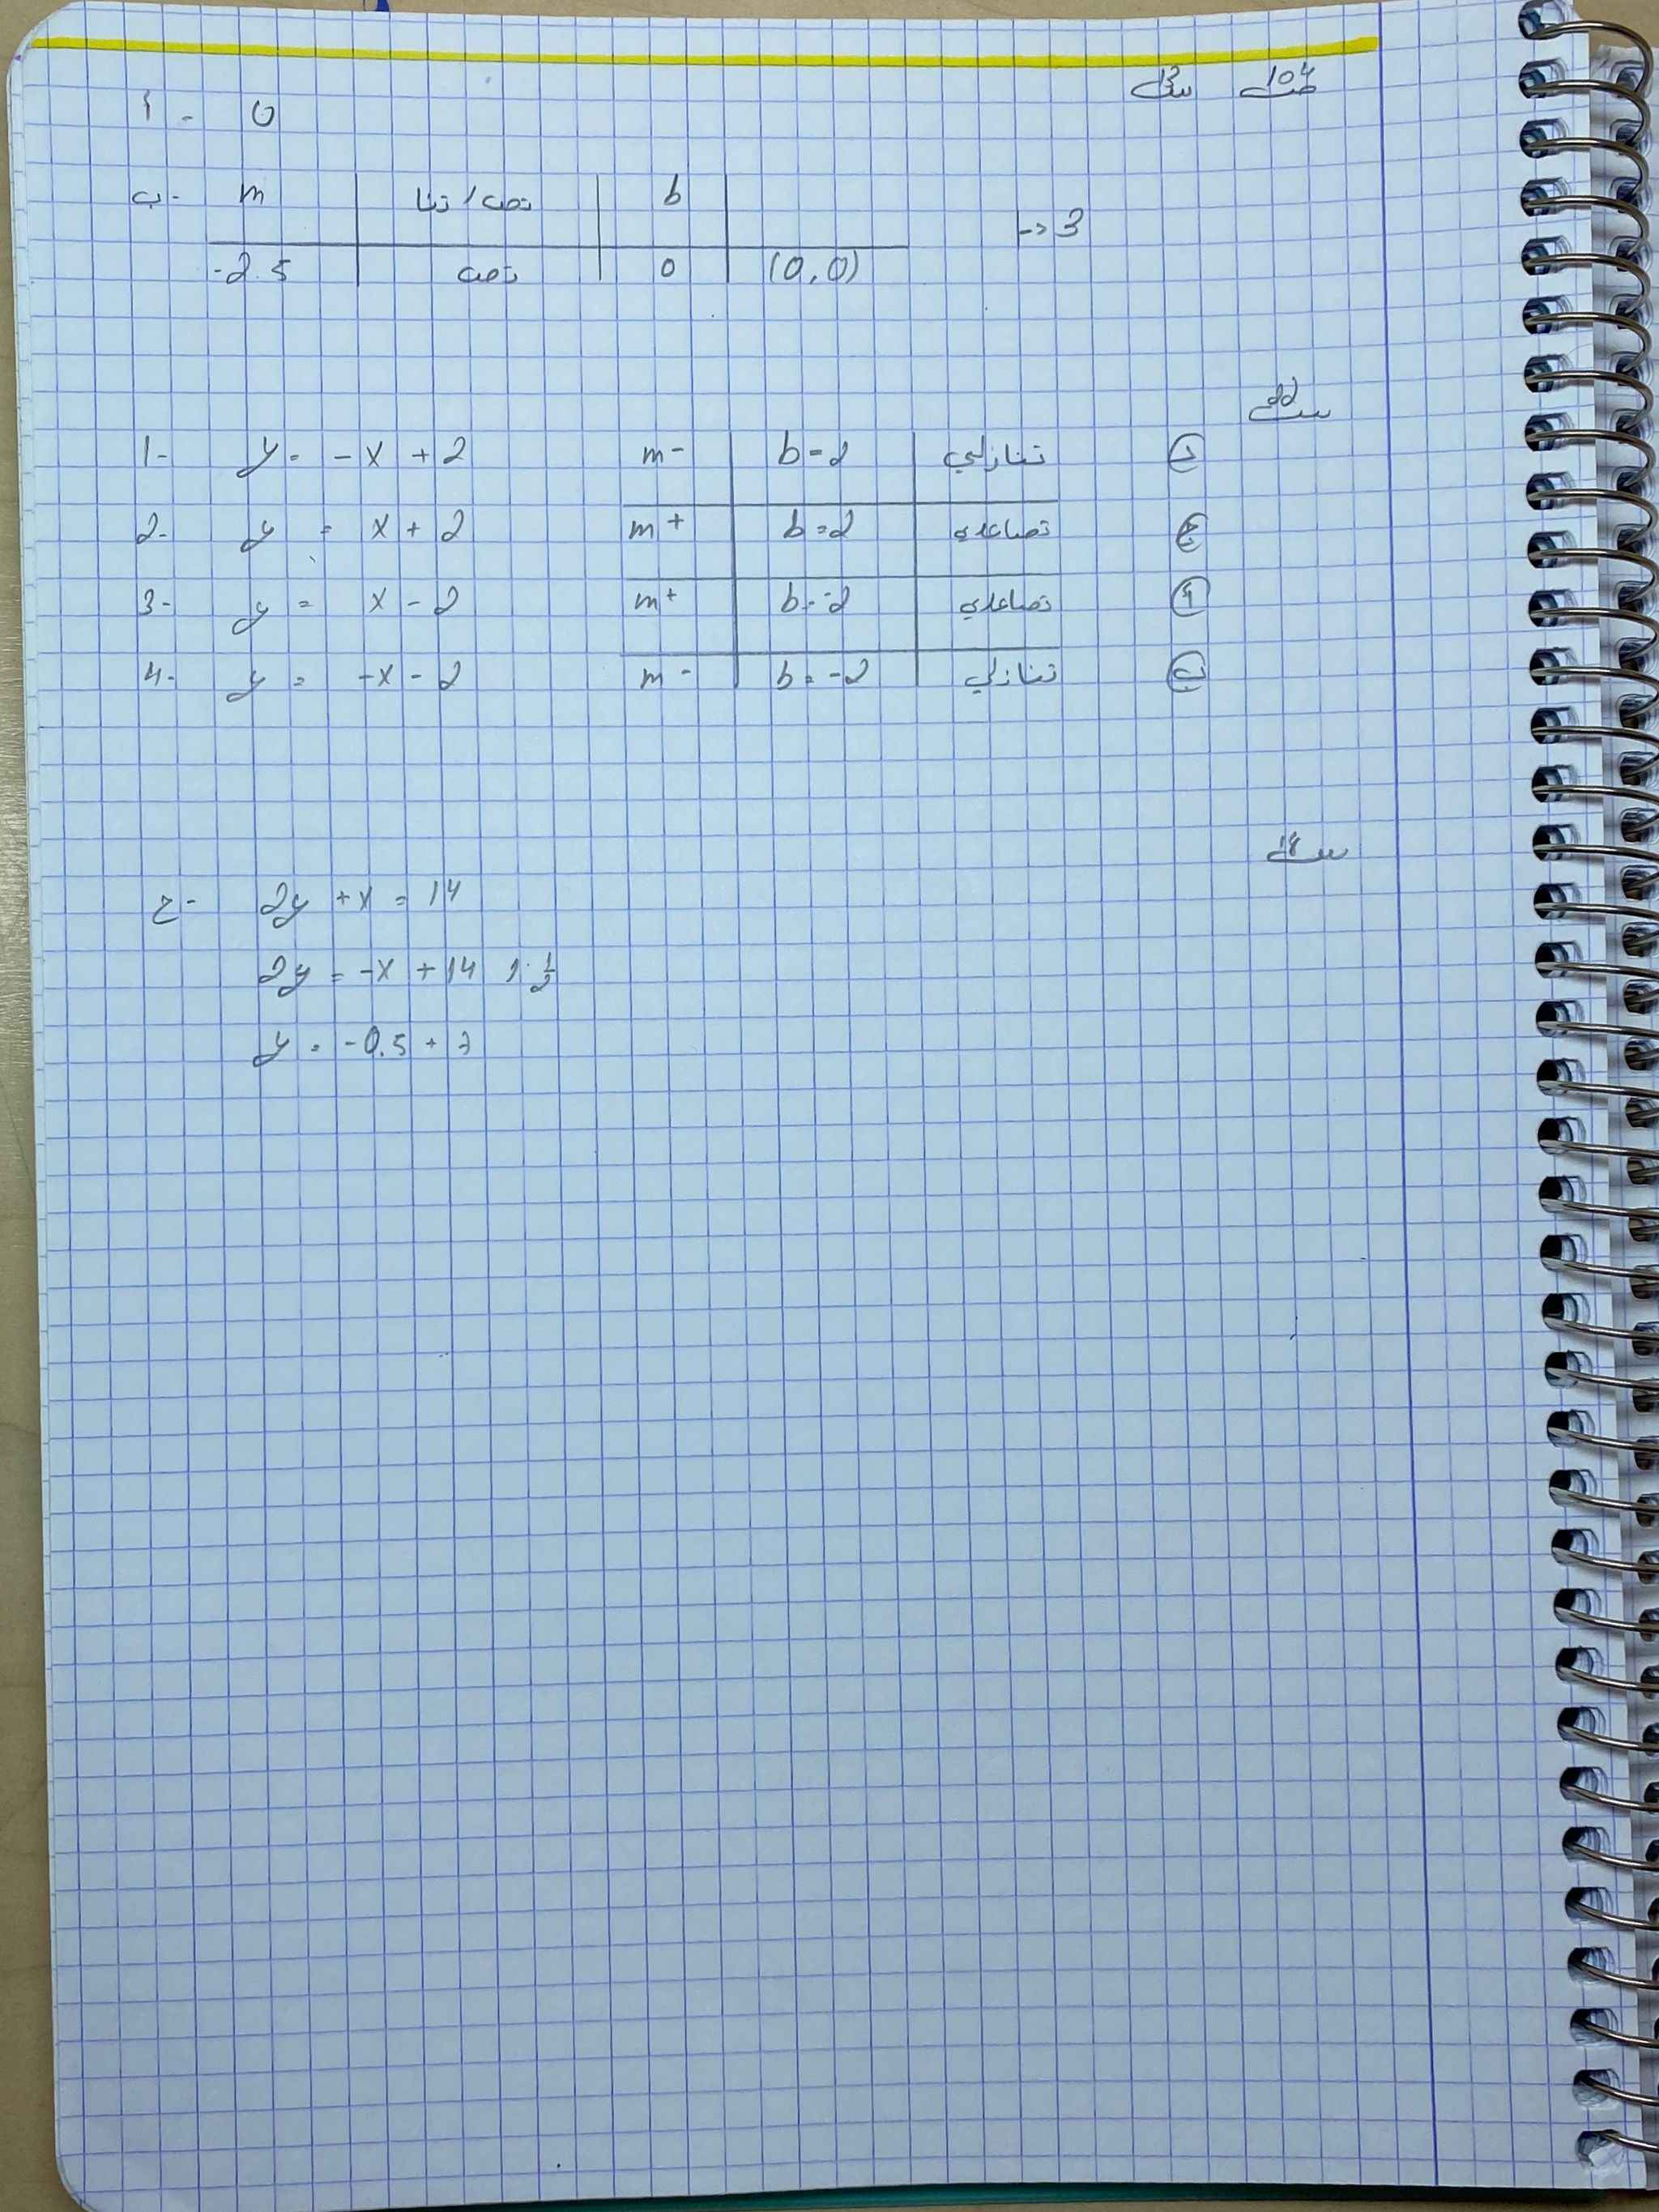 ص 104 س 13
أ - 0
ب - m | تصا / تنا | b
-2.5 | تصا | 0 | (0,0)
→ 3
س 22
1- y = -x + 2 m- | b = 2 | تنازلي د
2- y = x + 2 m+ | b = 2 | تصاعدي ج
3- y = x - 2 m+ | b = -2 | تصاعدي أ
4- y = -x - 2 m- | b = -2 | تنازلي ب
س 18
ج - 2y + x = 14
2y = -x + 14 / · 1/2
y = -0.5 + 7